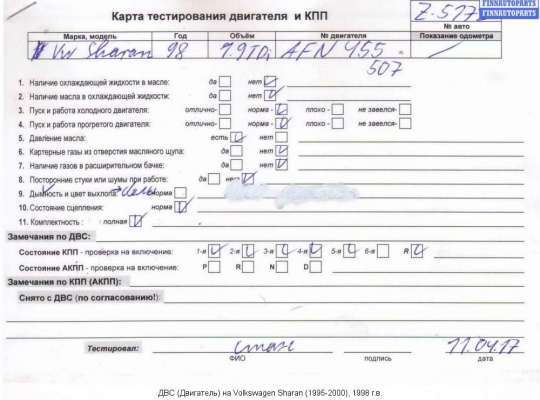 FINNAUTOPARTS
FINNAUTOPARTS
Карта тестирования двигателя и КПП
Z-517
№ авто
Марка, модель Год Объём № двигателя Показание одометра
VW Sharan 98 1.9TDi AFN 455
507
1. Наличие охлаждающей жидкости в масле: да нет
2. Наличие масла в охлаждающей жидкости: да нет
3. Пуск и работа холодного двигателя: отлично- норма - плохо - не завелся-
4. Пуск и работа прогретого двигателя: отлично- норма - плохо - не завелся-
5. Давление масла: есть нет
6. Картерные газы из отверстия масляного щупа: да нет
7. Наличие газов в расширительном бачке: да нет
8. Посторонние стуки или шумы при работе: да нет
9. Дымность и цвет выхлопа: норма
10. Состояние сцепления: норма
11. Комплектность : полная
Замечания по ДВС:
Состояние КПП - проверка на включение: 1-я 2-я 3-я 4-я 5-я 6-я R
Состояние АКПП - проверка на включение: P R N D
Замечания по КПП (АКПП):
Снято с ДВС (по согласованию!):
Тестировал: стаж 11.04.17
ФИО подпись дата
ДВС (Двигатель) на Volkswagen Sharan (1995-2000), 1998 г.в.